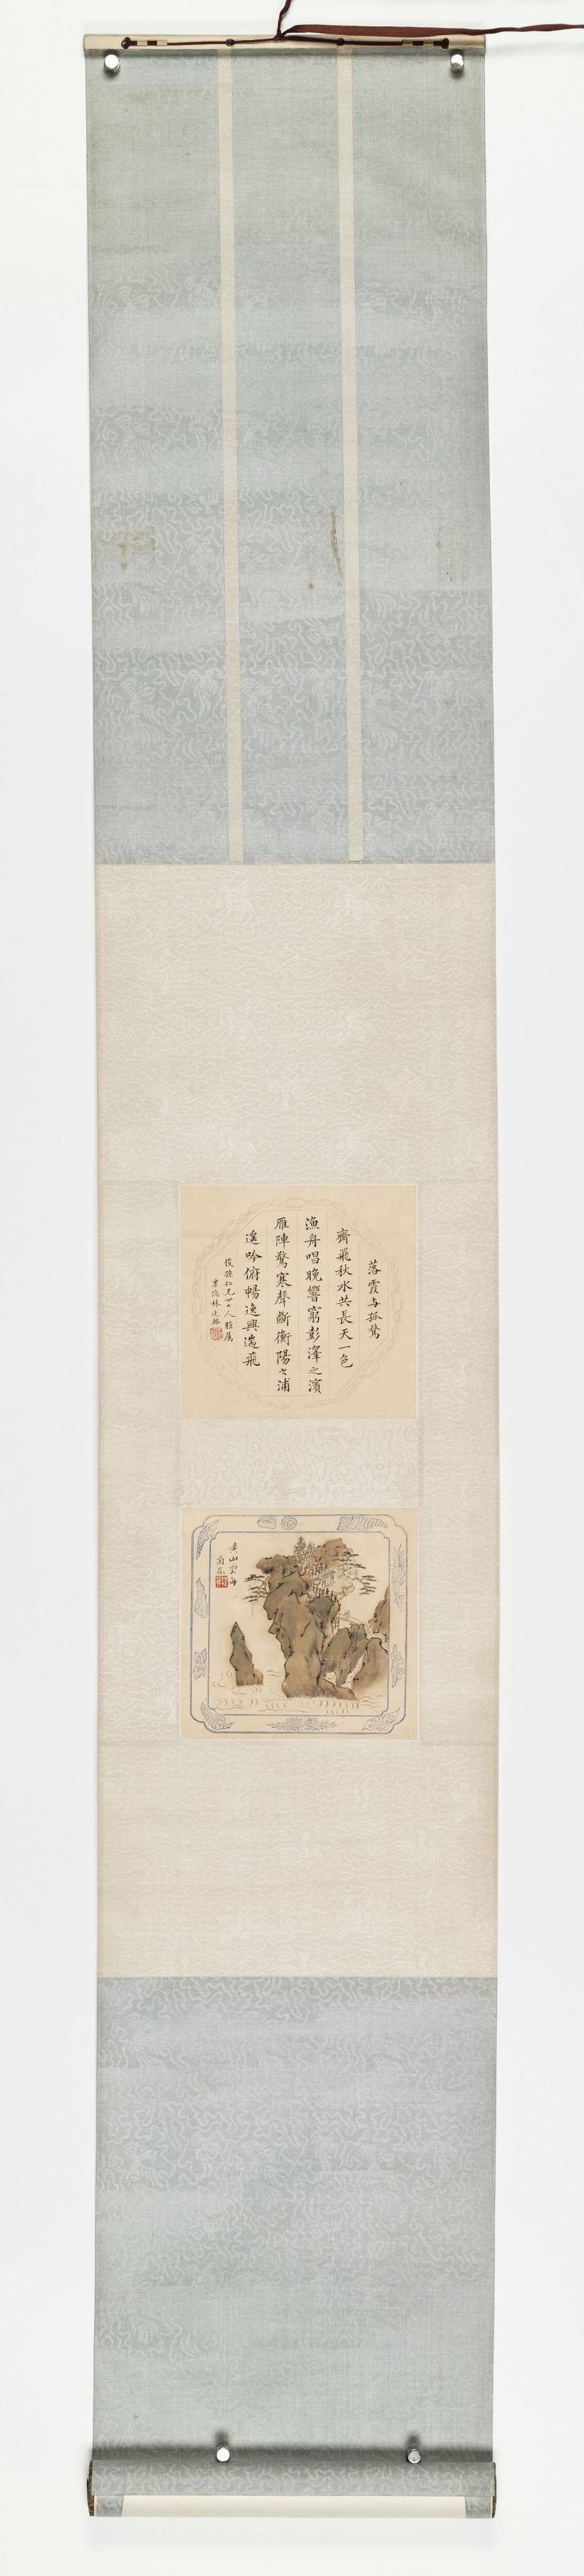 落霞与孤鶩
齊飛秋水共長天一色
漁舟唱晚響窮彭澤之濱
雁陣驚寒聲斷衡陽之浦
遙吟俯暢逸興遄飛
俊孫仁兄大人雅属
黄山雲舟